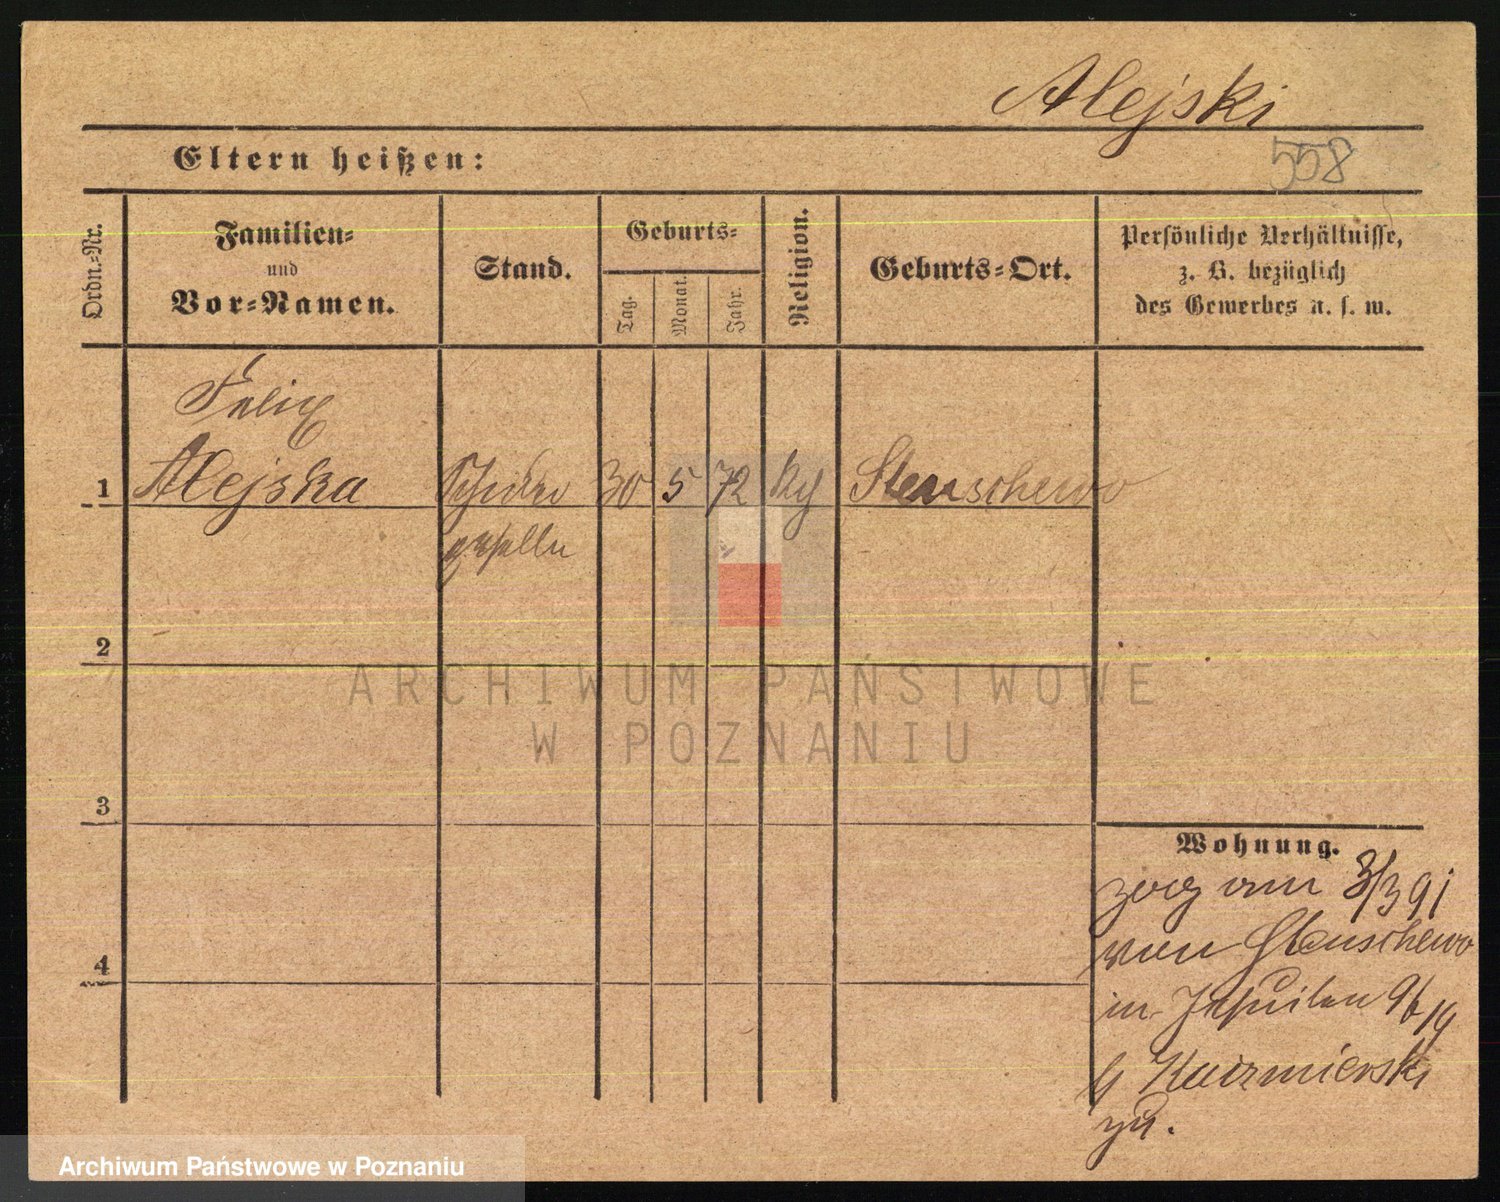 Alejski
Eltern heißen:
558
Ordn.-Nr.
Familien-
und
Vor-Namen.
Stand.
Geburts-
Tag.
Monat.
Jahr.
Religion.
Geburts-Ort.
Persönliche Verhältnisse,
z. B. bezüglich
des Gewerbes u. s. w.
Felix
1 Alejska 30 5 72 Stenschewo
geselle
2
3
4
Wohnung.
zog am 3/3 91
von Stenschewo
in Jesuiten
Kaczmierski
zu.
ARCHIWUM PAŃSTWOWE
W POZNANIU
Archiwum Państwowe w Poznaniu